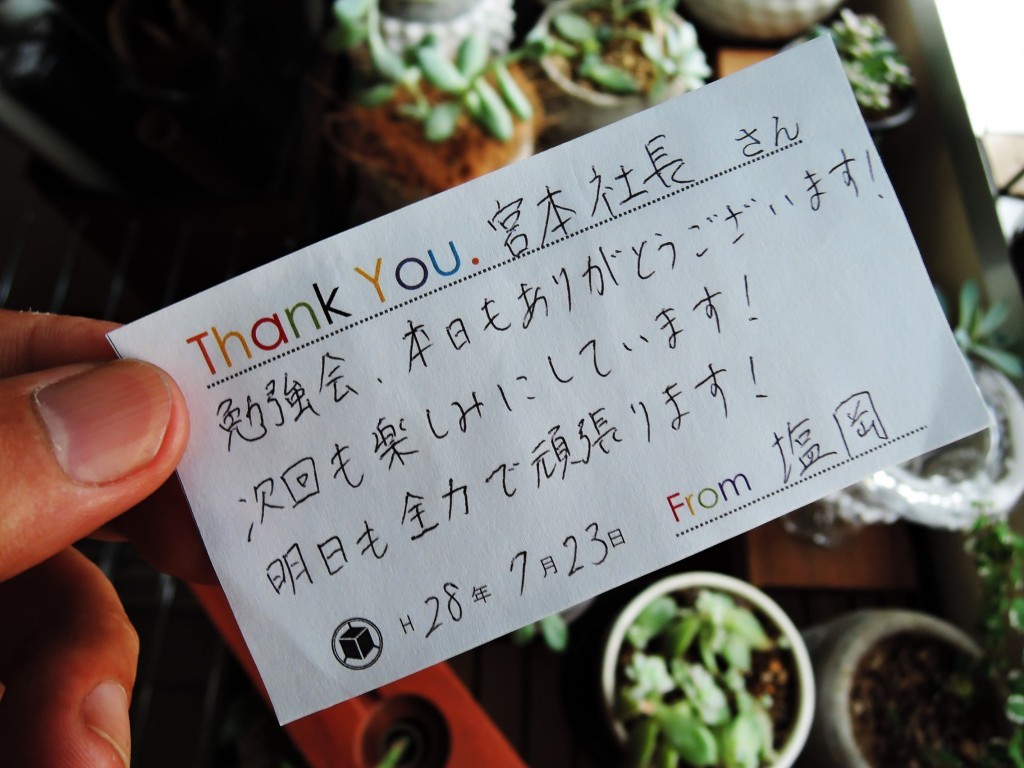 Thank You. 宮本社長 さん
勉強会、本日もありがとうございます!
次回も楽しみにしています!
明日も全力で頑張ります!
From 塩岡
H28年 7月23日